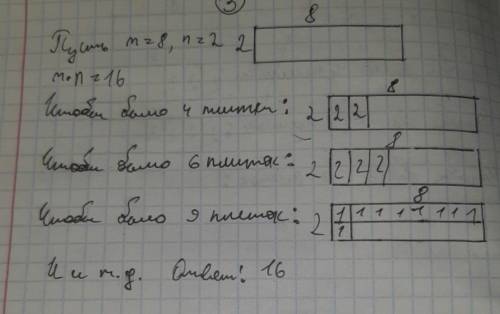 3
8
Пусть m=8, n=2 2
m·n=16
8
Чтобы было 4 плитки: 2 2 2
8
Чтобы было 6 плиток: 2 2 2 2
8
Чтобы было 9 плиток: 2 1 1 1 1 1 1 1 1
1
И и т.д. Ответ: 16